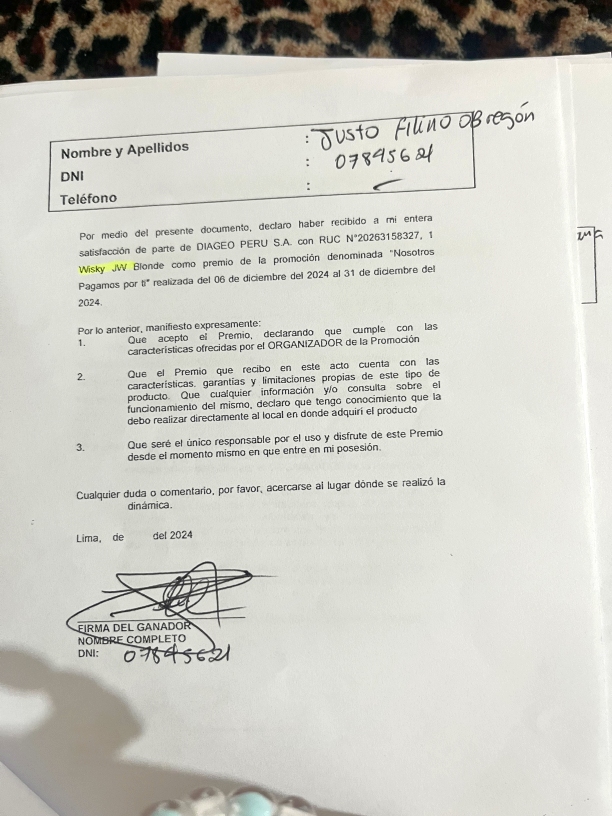 Nombre y Apellidos : Justo Filino OBregón
DNI : 07845621
Teléfono :
Por medio del presente documento, declaro haber recibido a mi entera
satisfacción de parte de DIAGEO PERU S.A. con RUC N°20263158327, 1
Wisky JW Blonde como premio de la promoción denominada "Nosotros
Pagamos por ti" realizada del 06 de diciembre del 2024 al 31 de diciembre del
2024.
Por lo anterior, manifiesto expresamente:
1. Que acepto el Premio, declarando que cumple con las
características ofrecidas por el ORGANIZADOR de la Promoción
2. Que el Premio que recibo en este acto cuenta con las
características, garantías y limitaciones propias de este tipo de
producto. Que cualquier información y/o consulta sobre el
funcionamiento del mismo, declaro que tengo conocimiento que la
debo realizar directamente al local en donde adquirí el producto
3. Que seré el único responsable por el uso y disfrute de este Premio
desde el momento mismo en que entre en mi posesión.
Cualquier duda o comentario, por favor, acercarse al lugar dónde se realizó la
dinámica.
Lima, de del 2024
FIRMA DEL GANADOR
NOMBRE COMPLETO
DNI: 07845621